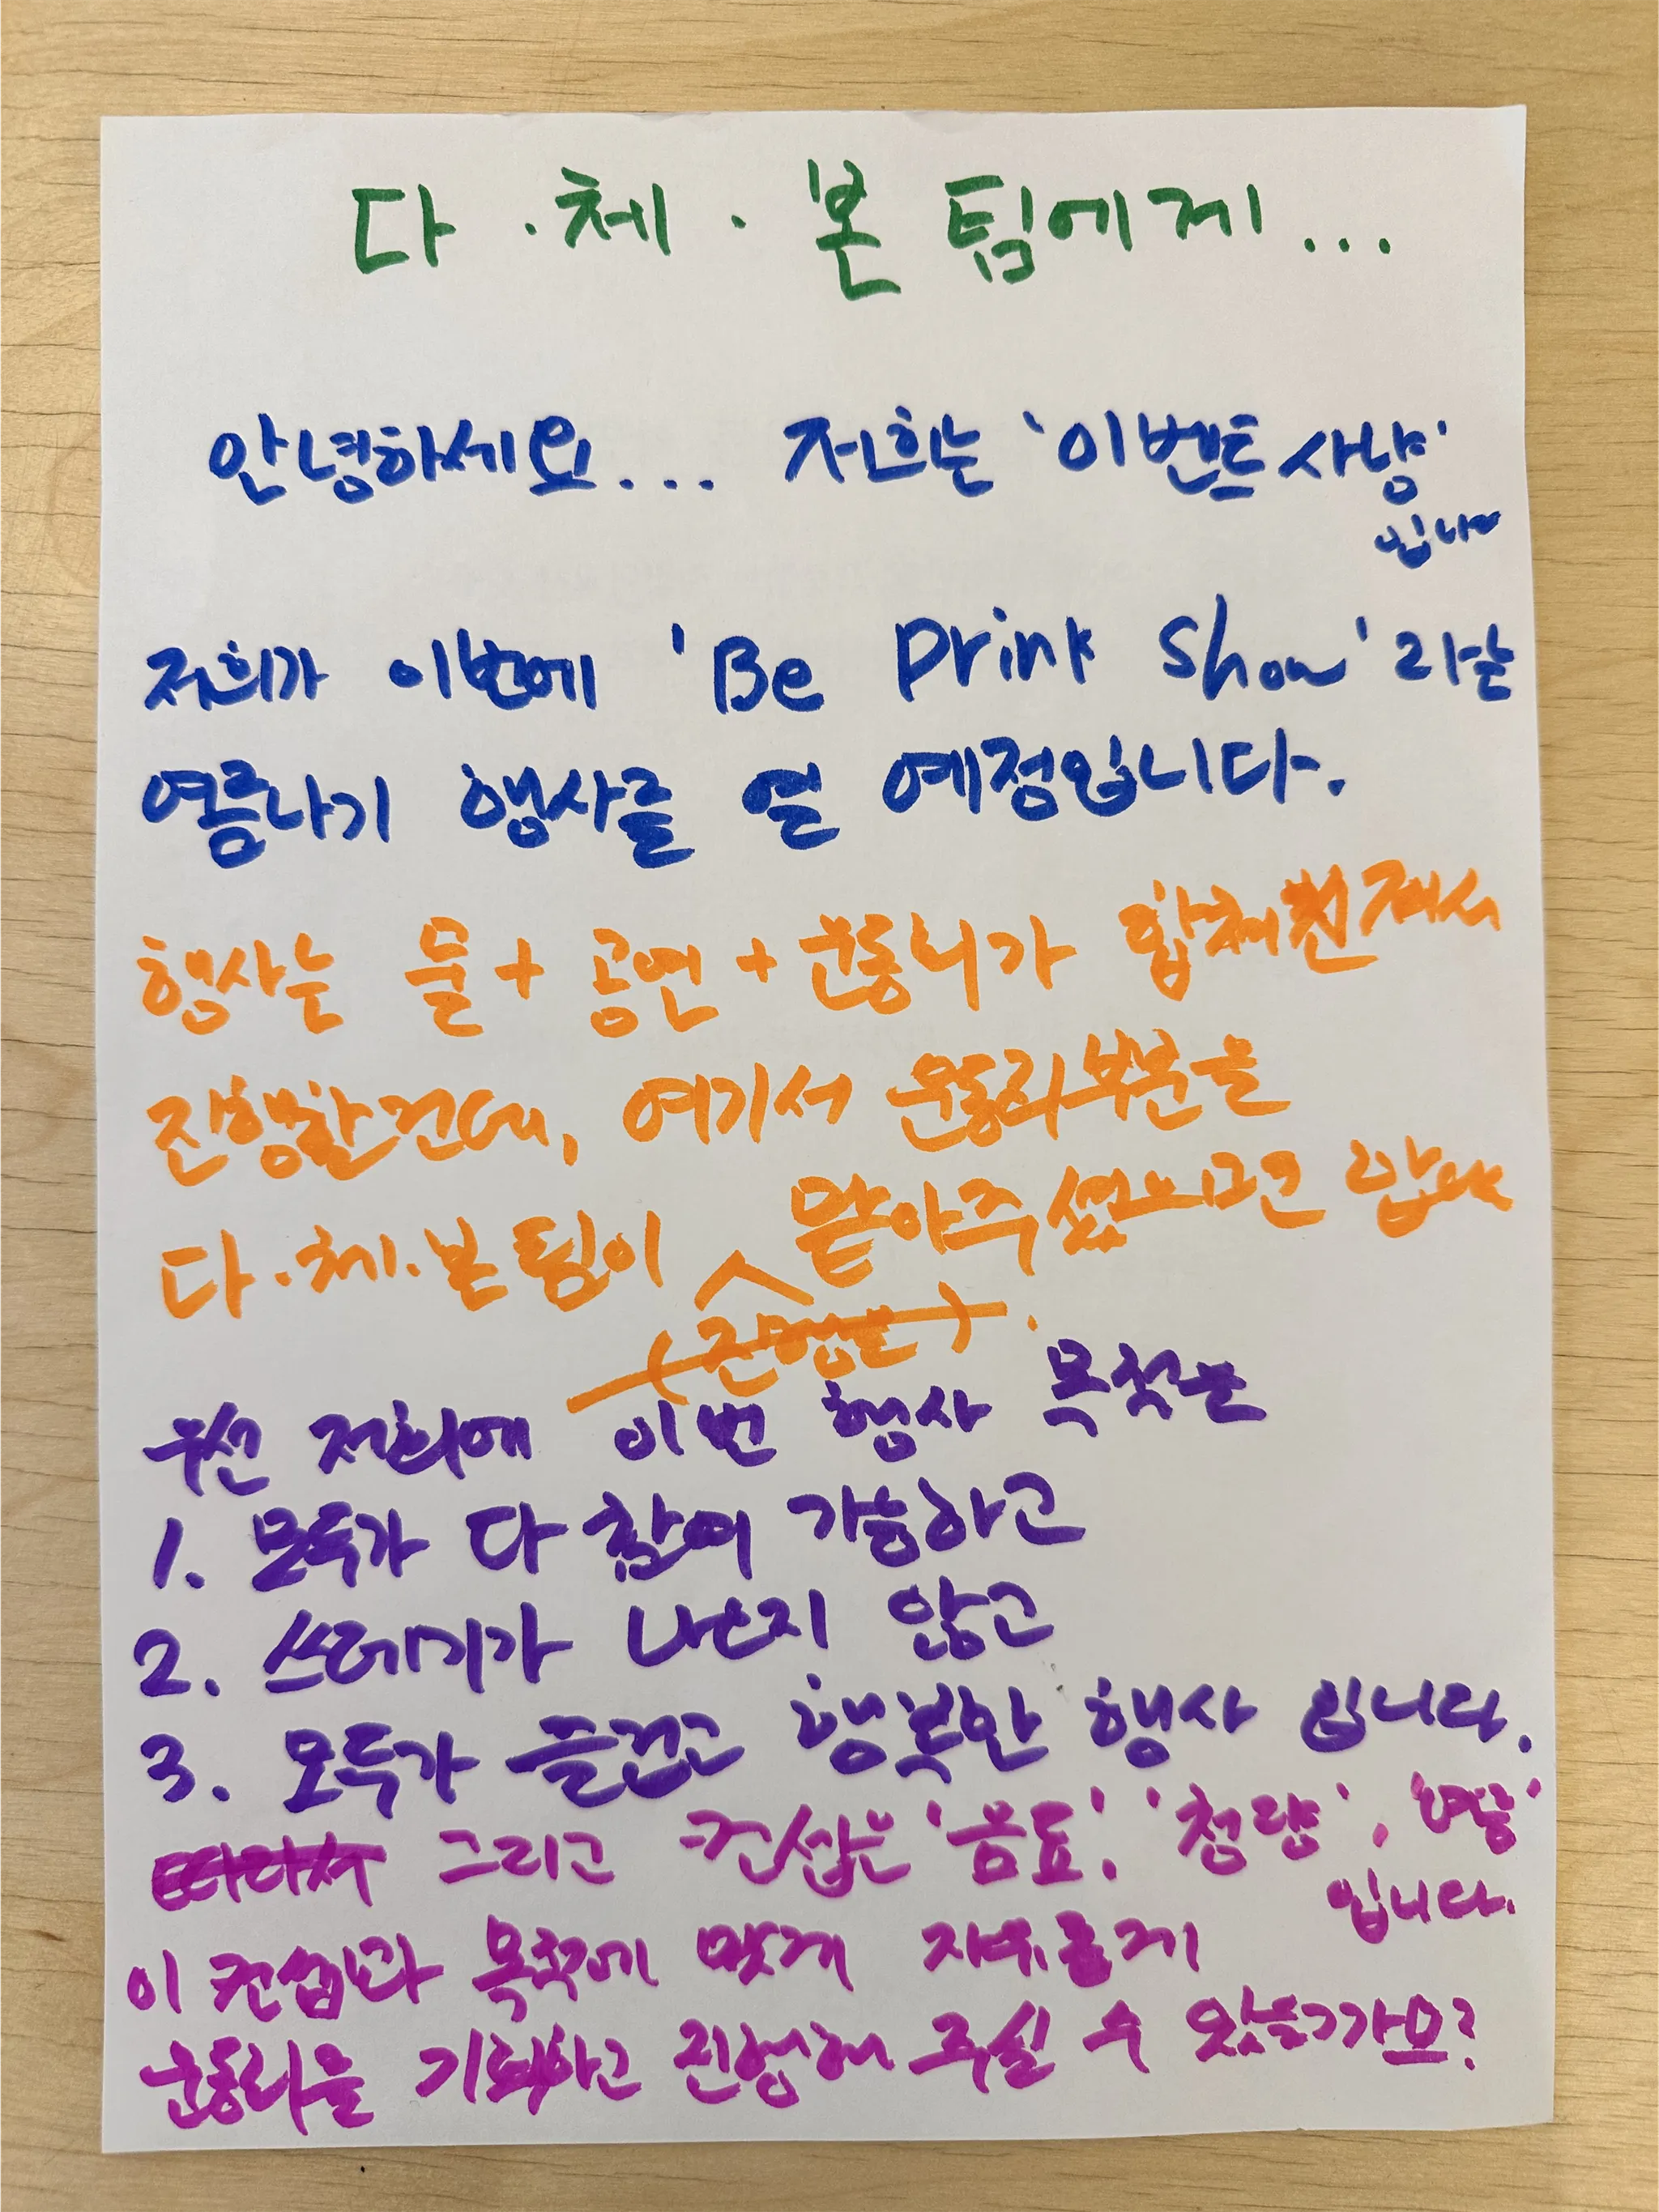 다·체·본 팀에게...
안녕하세요... 저희는 '이벤트 사냥'
입니다
저희가 이번에 'Be Drink Show'라는
여름나기 행사를 열 예정입니다.
행사는 물 + 공연 + 운동회가 합쳐진채서
진행할건데, 여기서 운동회 부분을
다·체·본 팀이 맡아주셨으면 합니다
(진행은)
우선 저희에 이번 행사 목적은
1. 모두가 다 참여 가능하고
2. 쓰레기가 나오지 않고
3. 모두가 즐겁고 행복한 행사 입니다.
따라서 그리고 컨셉은 '음료', '청량', '여름'
입니다.
이 컨셉과 목적에 맞게 자유롭게
운동회를 기획하고 진행해 주실 수 있을까요?